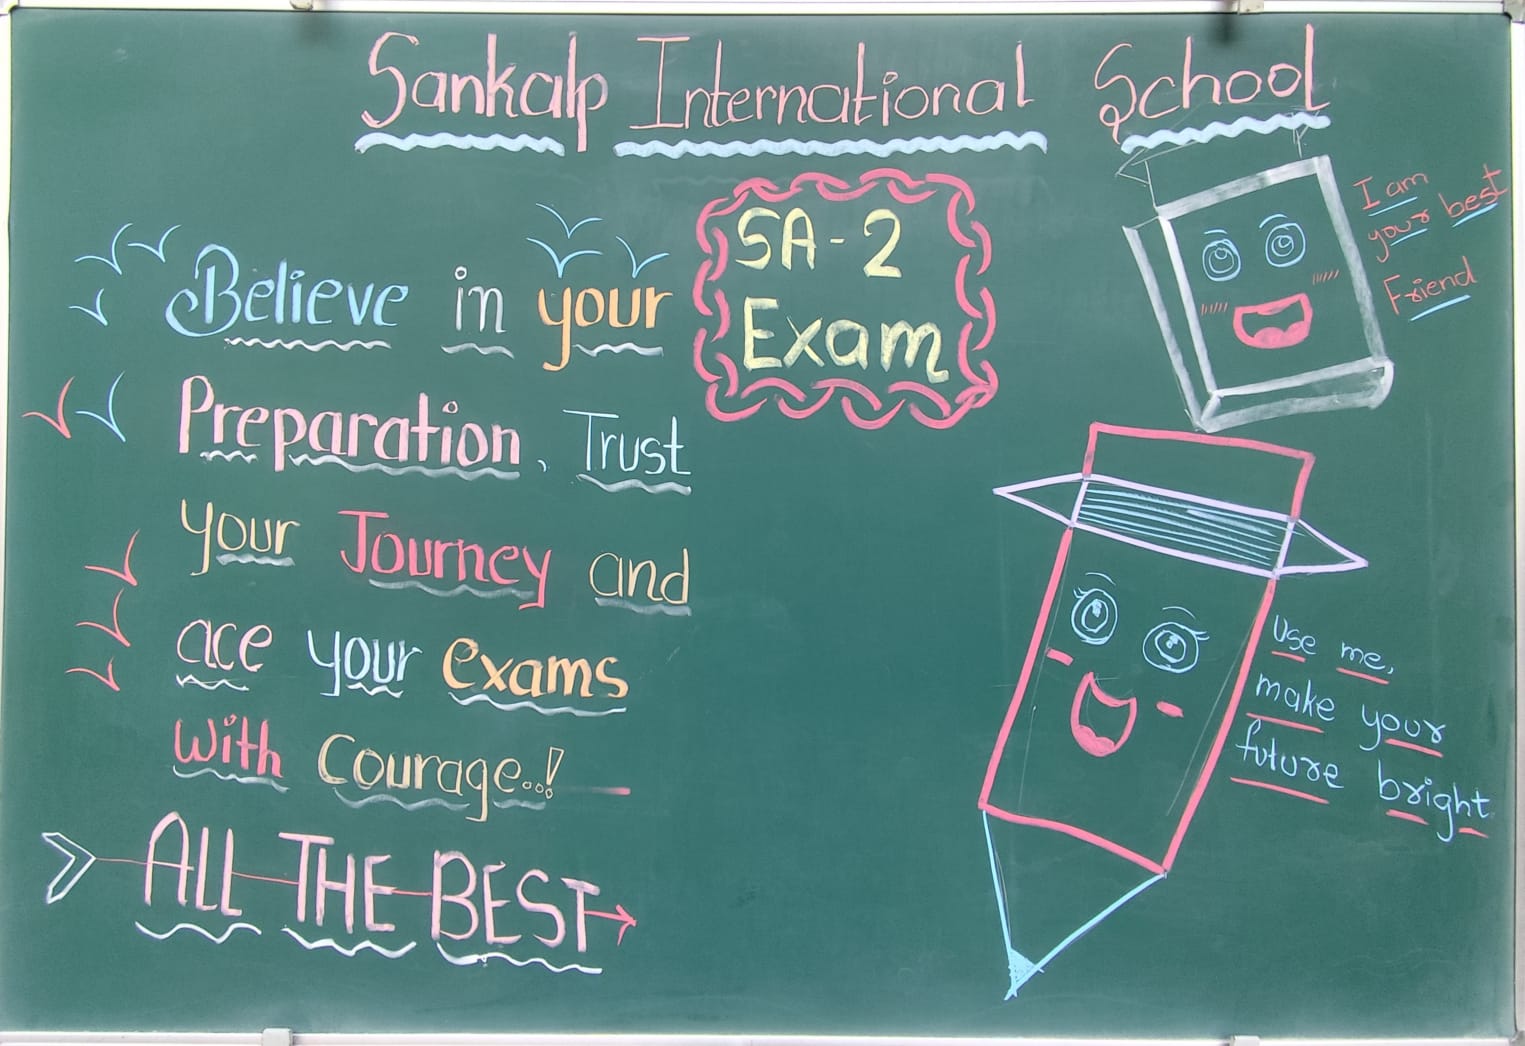 Sankalp International School
SA-2
Exam
Believe in your
Preparation, Trust
your Journey and
ace your exams
with Courage..!
ALL THE BEST
I am
your best
Friend
Use me,
make your
future bright